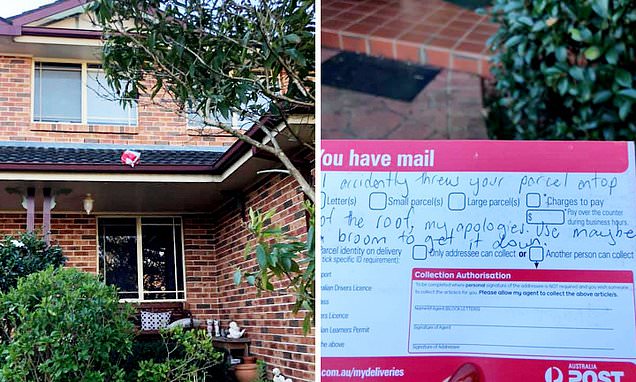 You have mail
I accidently threw your parcel ontop
Letter(s) Small parcel(s) Large parcel(s) Charges to pay
$ Pay over the counter
during business hours.
of the roof, my apologies. Use maybe
a broom to get it down.
Parcel identity on delivery
(tick specific ID requirement):
Only addressee can collect or Another person can collect
Collection Authorisation
To be completed where personal signature of the addressee is NOT required and you wish someone
to collect the articles for you. Please allow my agent to collect the above article/s.
Name of Agent (BLOCK LETTERS)
Signature of Agent
Signature of Addressee
port
alian Drivers Licence
ass
ers Licence
an Learners Permit
he above
.com.au/mydeliveries
AUSTRALIA
POST